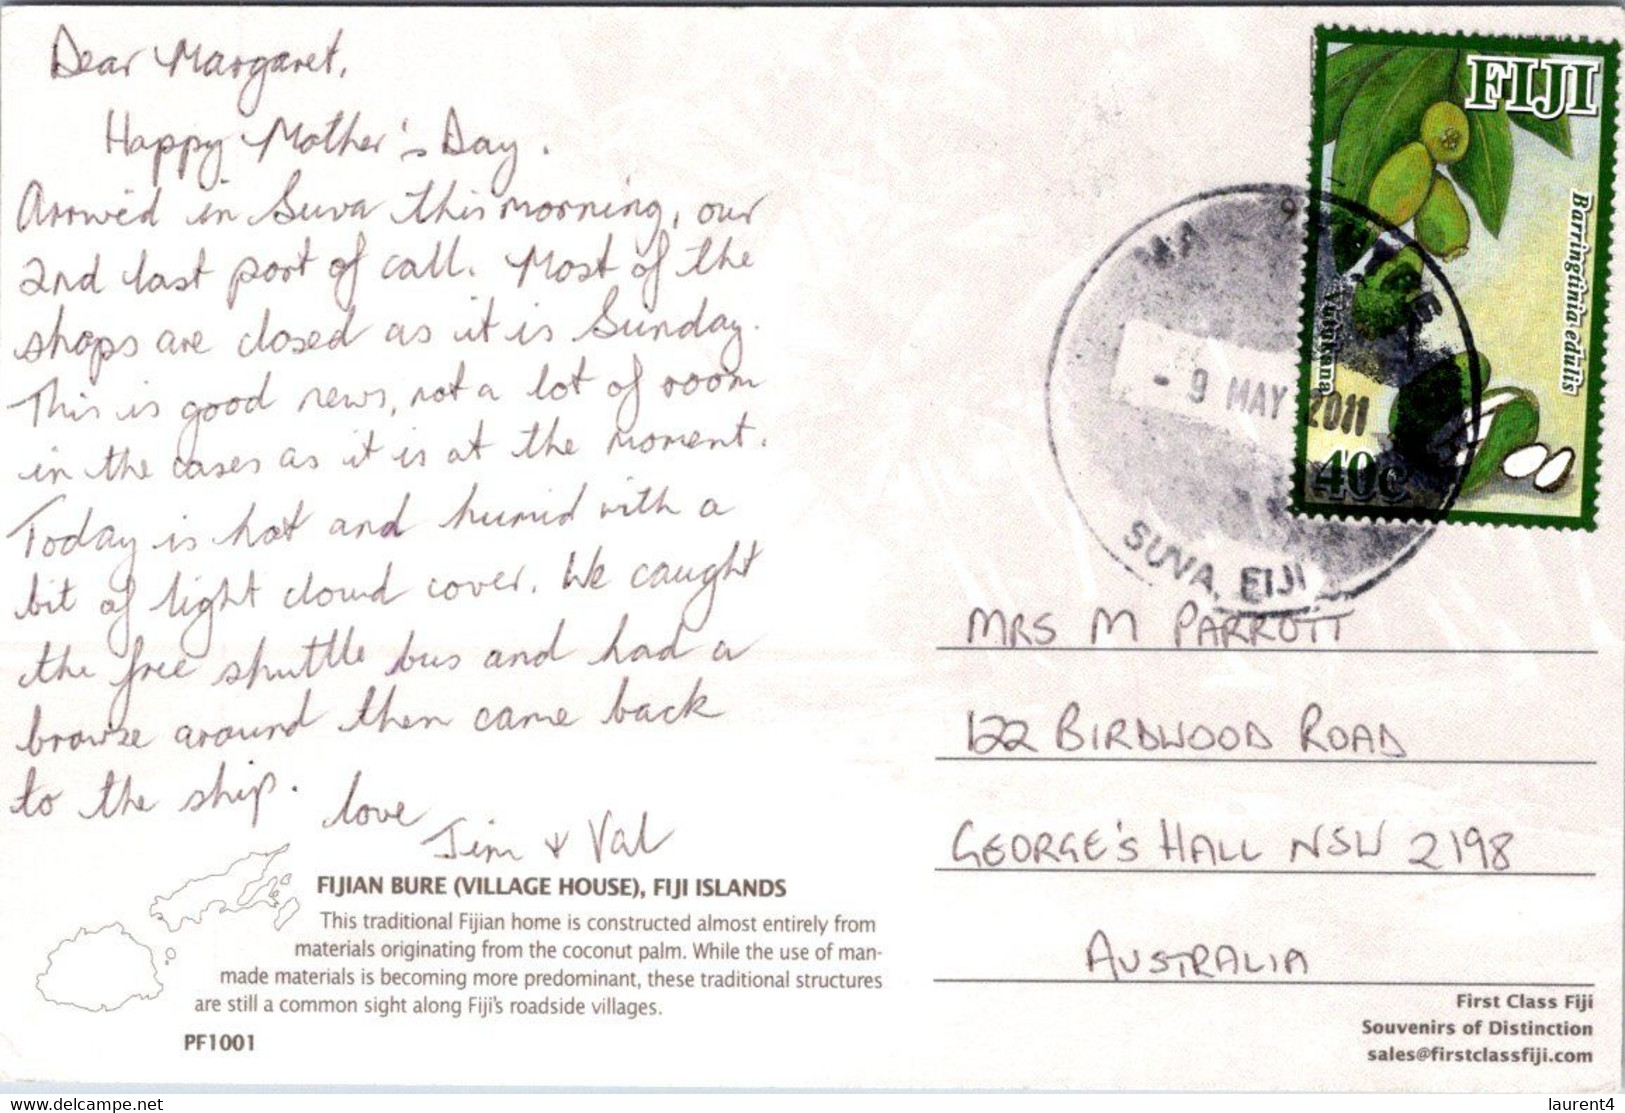 Dear Margaret,
Happy Mother's Day.
Arrived in Suva this morning, our
2nd last port of call. Most of the
shops are closed as it is Sunday.
This is good news, not a lot of room
in the cases as it is at the moment.
Today is hot and humid with a
bit of light cloud cover. We caught
the free shuttle bus and had a
browse around then came back
to the ship.
love
Jim & Val
FIJIAN BURE (VILLAGE HOUSE), FIJI ISLANDS
This traditional Fijian home is constructed almost entirely from
materials originating from the coconut palm. While the use of man-
made materials is becoming more predominant, these traditional structures
are still a common sight along Fiji's roadside villages.
PF1001
FIJI
Barringtonia edulis
Vutukana
40c
- 9 MAY 2011
SUVA, FIJI
MRS M PARROTT
122 BIRDWOOD ROAD
GEORGE'S HALL NSW 2198
AUSTRALIA
First Class Fiji
Souvenirs of Distinction
sales@firstclassfiji.com
www.delcampe.net
laurent4